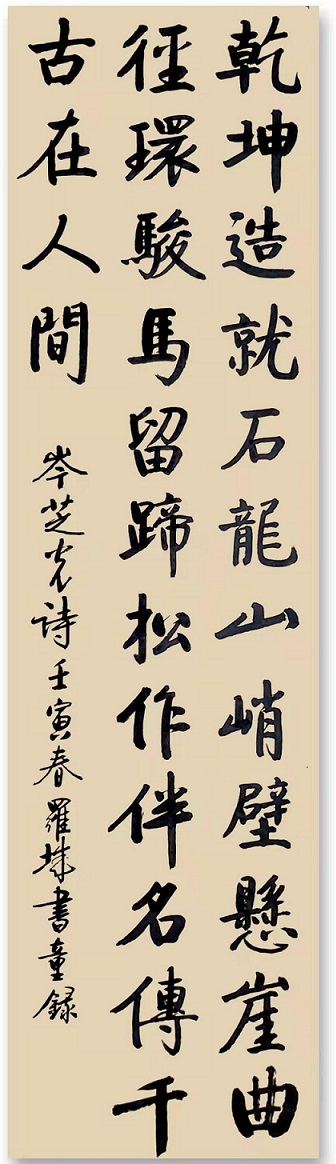 乾坤造就石龍山峭壁懸崖曲
徑環駿馬留蹄松作伴名傳千
古在人間
岑芝光詩壬寅春羅城書童錄